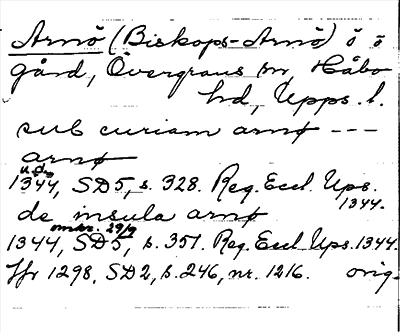 Arnö (Biskops-Arnö) ö o
gård, Övergrans sn, Håbo
hd, Upps. l.
sub curiam arnø ---
arnø
u.d.
1344, SD5, s. 328. Reg. Eccl. Ups.
1344.
de insula arnø
omkr. 29/9
1344, SD5, s. 351. Reg. Eccl. Ups. 1344.
Jfr 1298, SD2, s. 246, nr. 1216. orig.